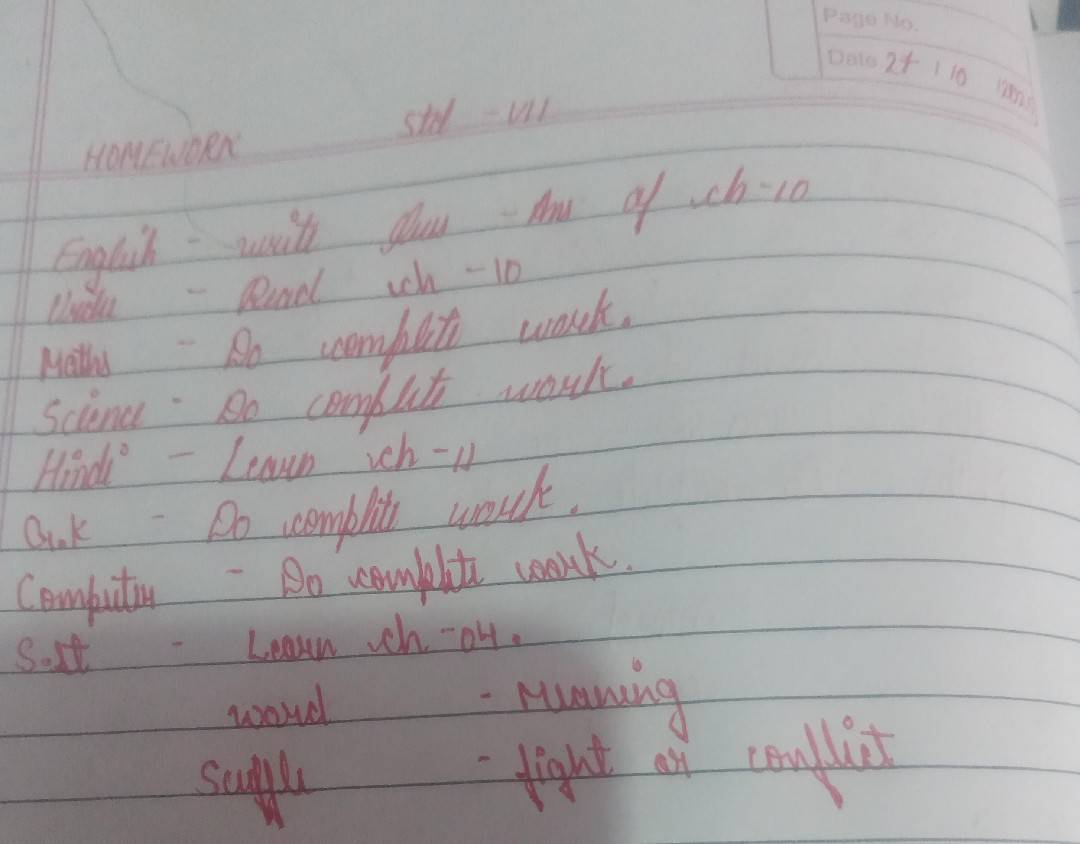 Page No.
Date 27 / 10 /2025
HOMEWORK Std - VII
English - write Ques - Ans of ch-10
Urdu - Read ch - 10
Maths - Do complete work.
Science - Do complete work.
Hindi - Learn ch - 11
G.K - Do complete work.
Computer - Do complete work.
S.St - Learn ch - 04.
word - Meaning
Scuffle - fight or conflict